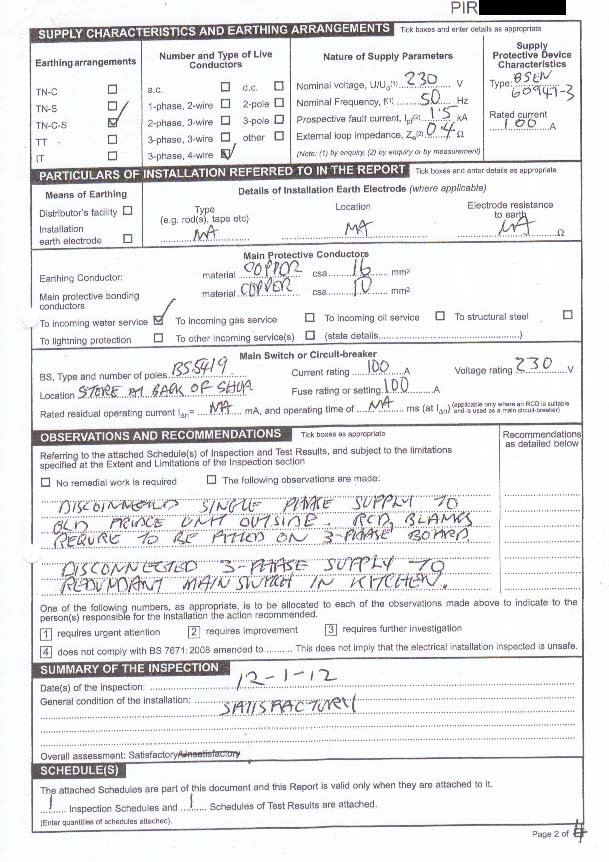 PIR
SUPPLY CHARACTERISTICS AND EARTHING ARRANGEMENTS Tick boxes and enter details as appropriate
Earthing arrangements
TN-C
TN-S
TN-C-S
TT
IT
Number and Type of Live
Conductors
a.c. d.c.
1-phase, 2-wire 2-pole
2-phase, 3-wire 3-pole
3-phase, 3-wire other
3-phase, 4-wire
Nature of Supply Parameters
Nominal voltage, U/U₀(1) 230 V
Nominal Frequency, f(1) 50 Hz
Prospective fault current, Ipf(2) 1.5 kA
External loop impedance, Ze(2) 0.4 Ω
(Note: (1) by enquiry, (2) by enquiry or by measurement)
Supply
Protective Device
Characteristics
Type: BSEN
60947-3
Rated current
100 A
PARTICULARS OF INSTALLATION REFERRED TO IN THE REPORT Tick boxes and enter details as appropriate
Means of Earthing
Distributor's facility
Installation
earth electrode
Details of Installation Earth Electrode (where applicable)
Type
(e.g. rod(s), tape etc)
NA
Location
NA
Electrode resistance
to earth
NA Ω
Main Protective Conductors
Earthing Conductor: material COPPOR csa 16 mm²
Main protective bonding
conductors material COPPER csa 10 mm²
To incoming water service To incoming gas service To incoming oil service To structural steel
To lightning protection To other incoming service(s) (state details)
Main Switch or Circuit-breaker
BS, Type and number of poles BS5419 Current rating 100 A Voltage rating 230 V
Location STORE AT BACK OF SHOP Fuse rating or setting 100 A
Rated residual operating current IΔn= NA mA, and operating time of NA ms (at IΔn) (applicable only where an RCD is suitable
and is used as a main circuit-breaker)
OBSERVATIONS AND RECOMMENDATIONS Tick boxes as appropriate
Recommendations
as detailed below
Referring to the attached Schedule(s) of Inspection and Test Results, and subject to the limitations
specified at the Extent and Limitations of the Inspection section
No remedial work is required The following observations are made:
DISCONNECTED SINGLE PHASE SUPPLY TO
OLD UNIT OUTSIDE. RCD, BLANKS
REQURE TO BE FITTED ON 3-PHASE BOARD
DISCONNECTED 3-PHASE SUPPLY TO
REDUNDANT MAIN SWITCH IN KITCHEN.
One of the following numbers, as appropriate, is to be allocated to each of the observations made above to indicate to the
person(s) responsible for the installation the action recommended.
1 requires urgent attention 2 requires improvement 3 requires further investigation
4 does not comply with BS 7671:2008 amended to ......... This does not imply that the electrical installation inspected is unsafe.
SUMMARY OF THE INSPECTION
Date(s) of the inspection: 12-1-12
General condition of the installation:
SATISFACTORY
Overall assessment: Satisfactory/Unsatisfactory
SCHEDULE(S)
The attached Schedules are part of this document and this Report is valid only when they are attached to it.
1 Inspection Schedules and 1 Schedules of Test Results are attached.
(Enter quantities of schedules attached).
Page 2 of